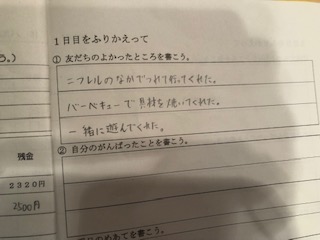 う。)
1日目をふりかえって
① 友だちのよかったところを書こう。
ニフレルのなかでつれて行ってくれた。
バーベキューで具材を焼いてくれた。
一緒に遊んでくれた。
② 自分のがんばったことを書こう。
残金
2320円
2500円
めあてを書こう。